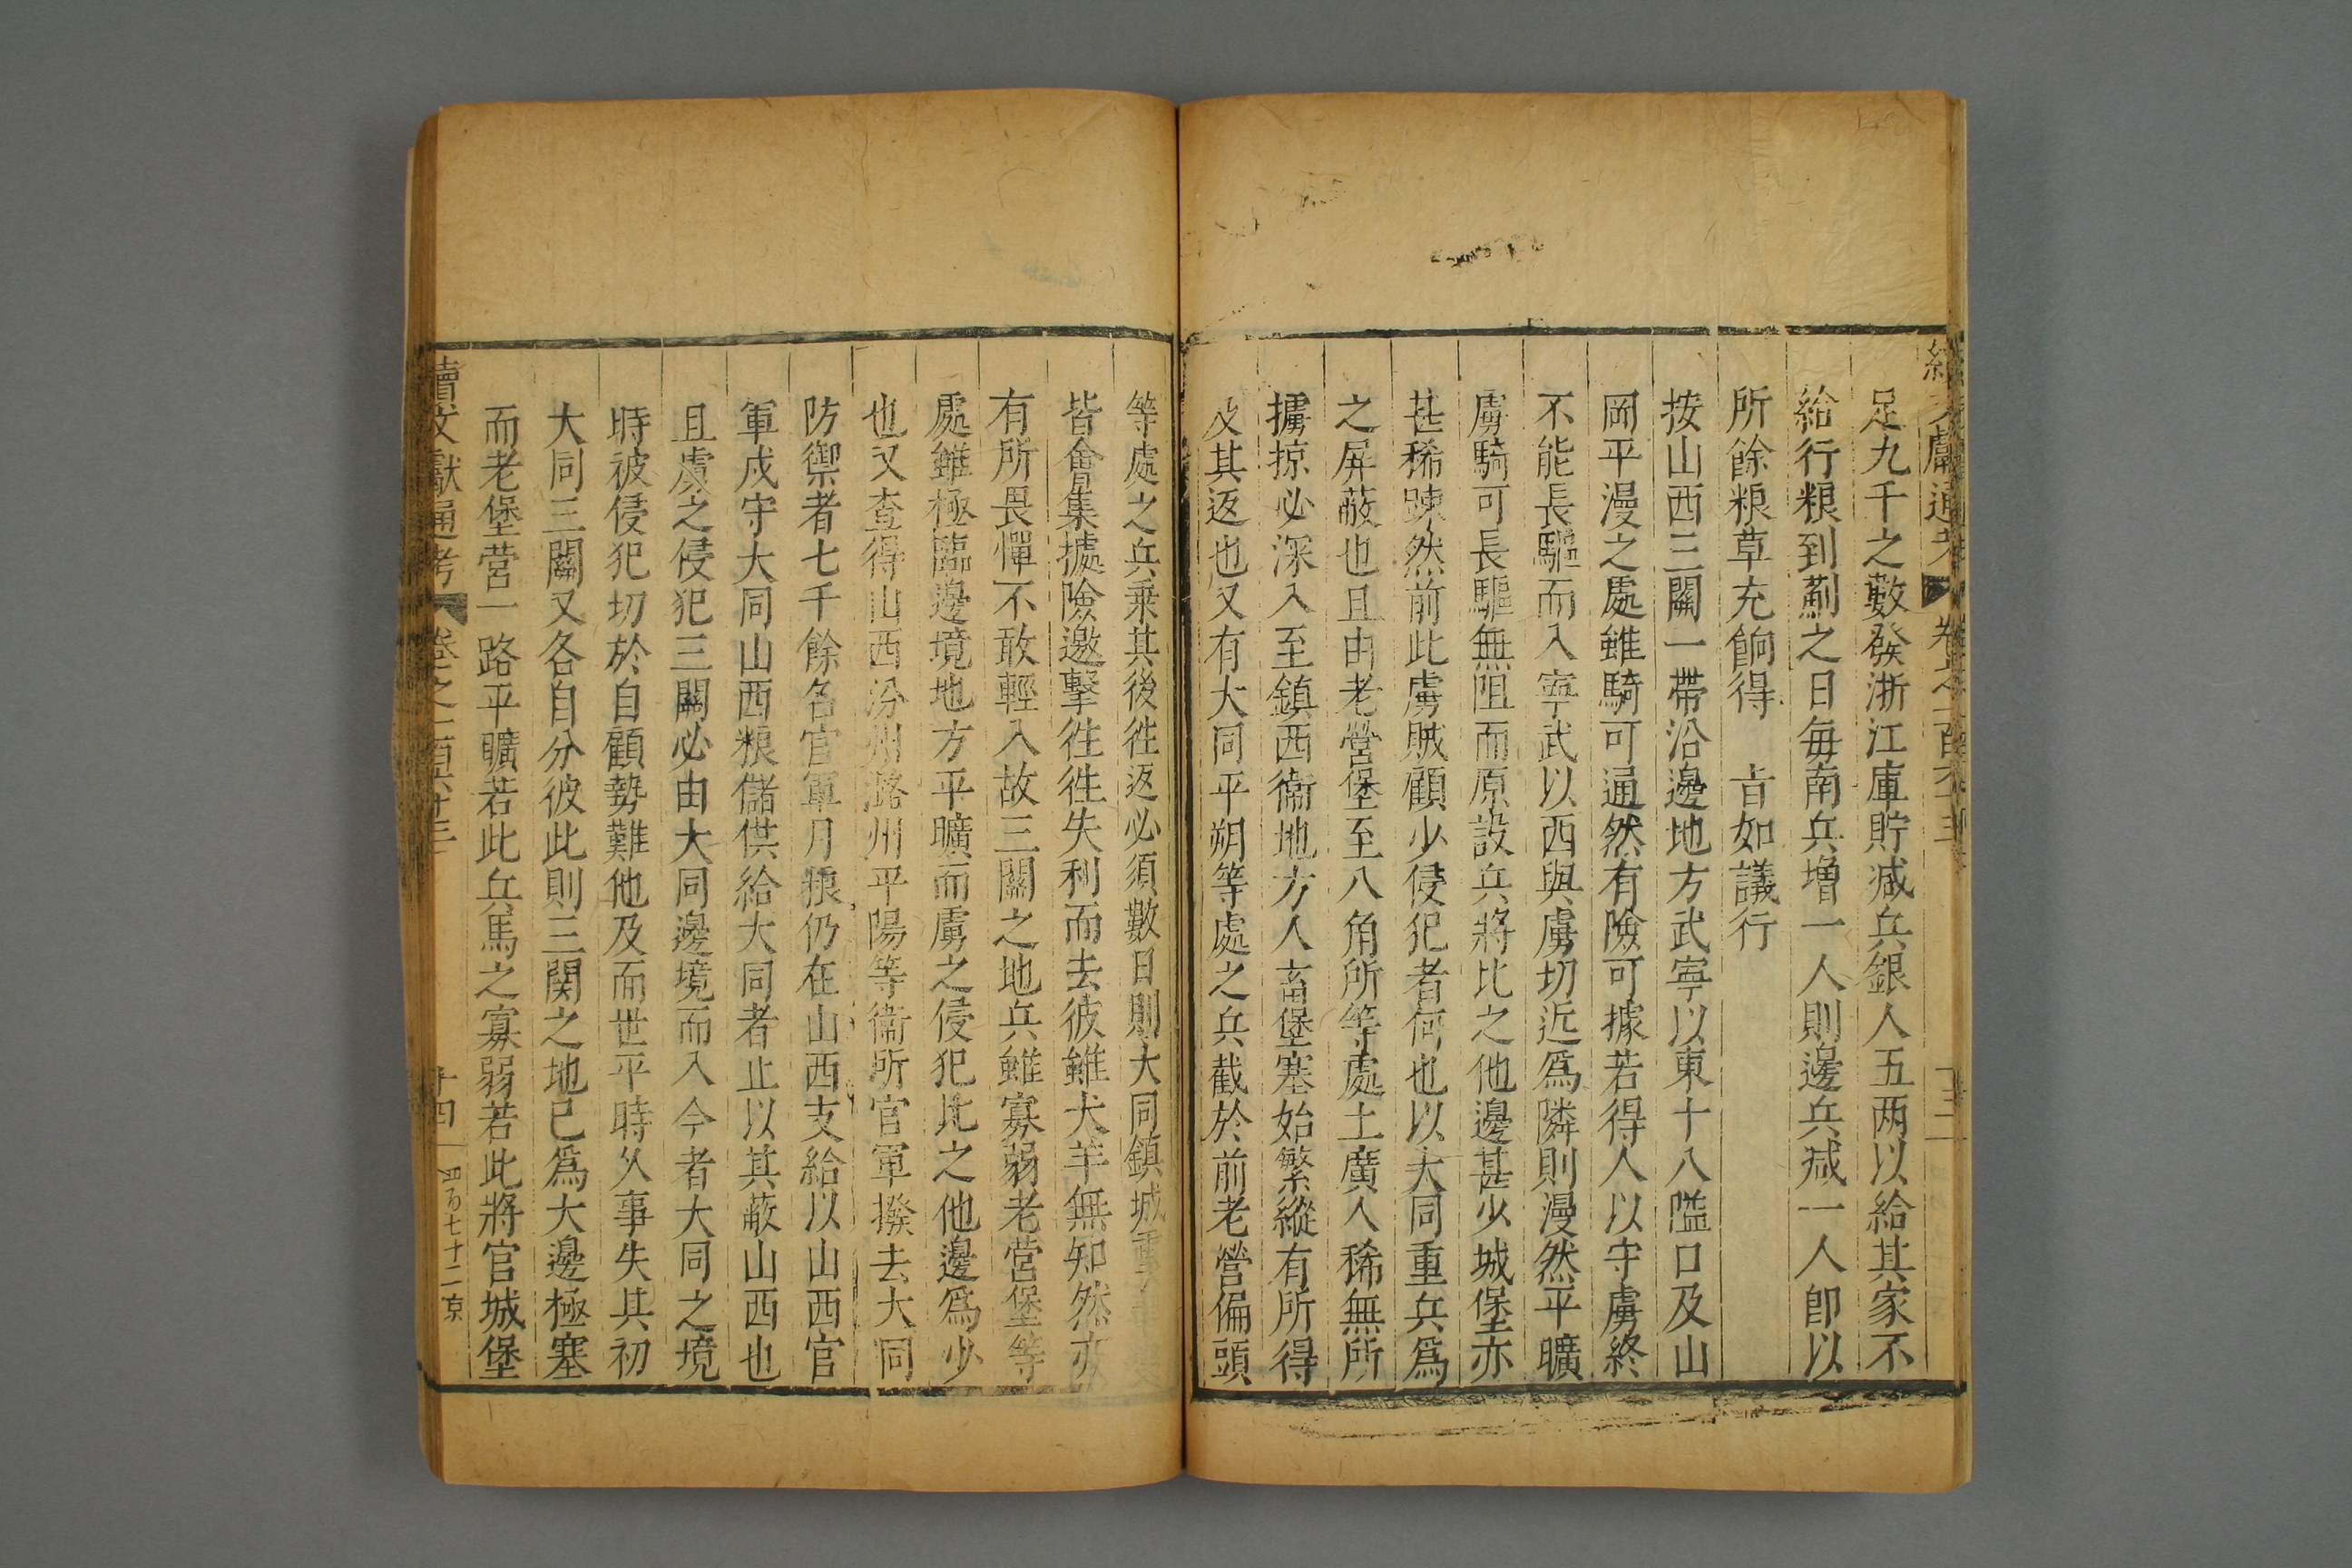 足九千之數發浙江庫貯减兵銀人五两以給其家不
給行粮到薊之日每南兵增一人則邊兵减一人卽以
所餘粮草充餉得 旨如議行
按山西三關一帶沿邊地方武寧以東十八隘口及山
岡平漫之處雖騎可通然有險可據若得人以守虜終
不能長驅而入寧武以西與虜切近爲隣則漫然平曠
虜騎可長驅無阻而原設兵將比之他邊甚少城堡亦
甚稀踈然前此虜賊顧少侵犯者何也以大同重兵爲
之屏蔽也且由老營堡至八角所等處土廣人稀無所
擄掠必深入至鎮西衞地方人畜堡塞始繁縱有所得
及其返也又有大同平朔等處之兵截於前老營偏頭
等處之兵乗其後徃返必須數日則大同鎮城重
皆會集㨿險邀擊徃徃失利而去彼雖犬羊無知然亦
有所畏憚不敢輕入故三關之地兵雖寡弱老營堡等
處雖極臨邊境地方平曠而虜之侵犯比之他邊爲少
也又查得山西汾州潞州平陽等衞所官軍撥去大同
防禦者七千餘名官軍月粮仍在山西支給以山西官
軍戍守大同山西粮儲供給大同者止以其蔽山西也
且虜之侵犯三關必由大同邊境而入今者大同之境
時被侵犯切於自顧勢難他及而世平時乆事失其初
大同三關又各自分彼此則三関之地已爲大邊極塞
而老堡營一路平曠若此兵馬之寡弱若此將官城堡
續文獻通考 卷之一百六十三 十四 四百七十二 京